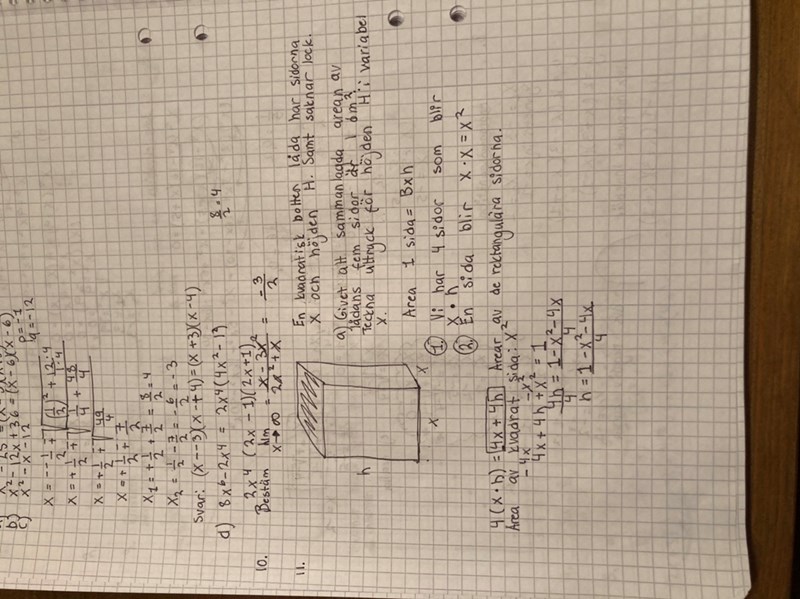 b) x² - 12x + 36 = (x - 6)(x - 6)
c) x² - x - 12 p = -1
q = -12
x = - -1/2 ± √((1/2)² + 12·4/1·4)
x = + 1/2 ± √(1/4 + 48/4)
x = + 1/2 ± √(49/4)
x = + 1/2 ± 7/2
x₁ = + 1/2 + 7/2 = 8/2 = 4
x₂ = 1/2 - 7/2 = -6/2 = -3
Svar: (x - -3)(x - +4) = (x+3)(x-4)
d) 8x⁶ - 2x⁴ = 2x⁴(4x² - 1²) 8/2 = 4
2x⁴ (2x - 1)(2x + 1)
10. Bestäm lim x→∞ = x - 3x²/2x² + x = -3/2
11. En kvadratisk botten låda har sidorna
x och höjden H. Samt saknar lock.
a) Givet att sammanlagda arean av
lådans fem sidor är 1 dm²
Teckna uttryck för höjden H i variabel
x.
h
x
x
Area 1 sida = B×h
① Vi har 4 sidor som blir
x·h
② En sida blir x·x = x²
4(x·h) = 4x + 4h Arear av de rektangulära sidorna.
Area av kvadrat sida: x²
-4x -x²
4x + 4h + x² = 1
4h/4 = 1 - x² - 4x/4
h = 1 - x² - 4x/4